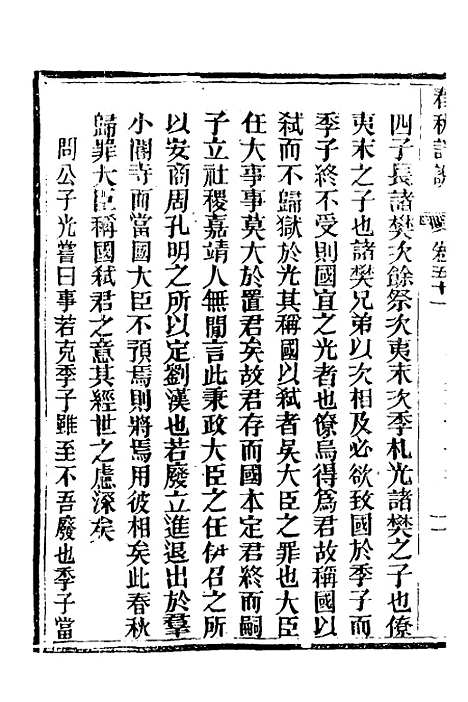 春秋詳說 卷五十一
四子長諸樊次餘祭次夷末次季札光諸樊之子也僚
夷末之子也諸樊兄弟以次相及必欲致國於季子而
季子終不受則國宜之光者也僚烏得爲君故稱國以
弒而不歸獄於光其稱國以弒者吳大臣之罪也大臣
任大事事莫大於置君矣故君存而國本定君終而嗣
子立社稷嘉靖人無閒言此秉政大臣之任伊召之所
以安商周孔明之所以定劉漢也若廢立進退出於羣
小閽寺而當國大臣不預焉則將焉用彼相矣此春秋
歸罪大臣稱國弒君之意其經世之慮深矣
問公子光嘗曰事若克季子雖至不吾廢也季子當